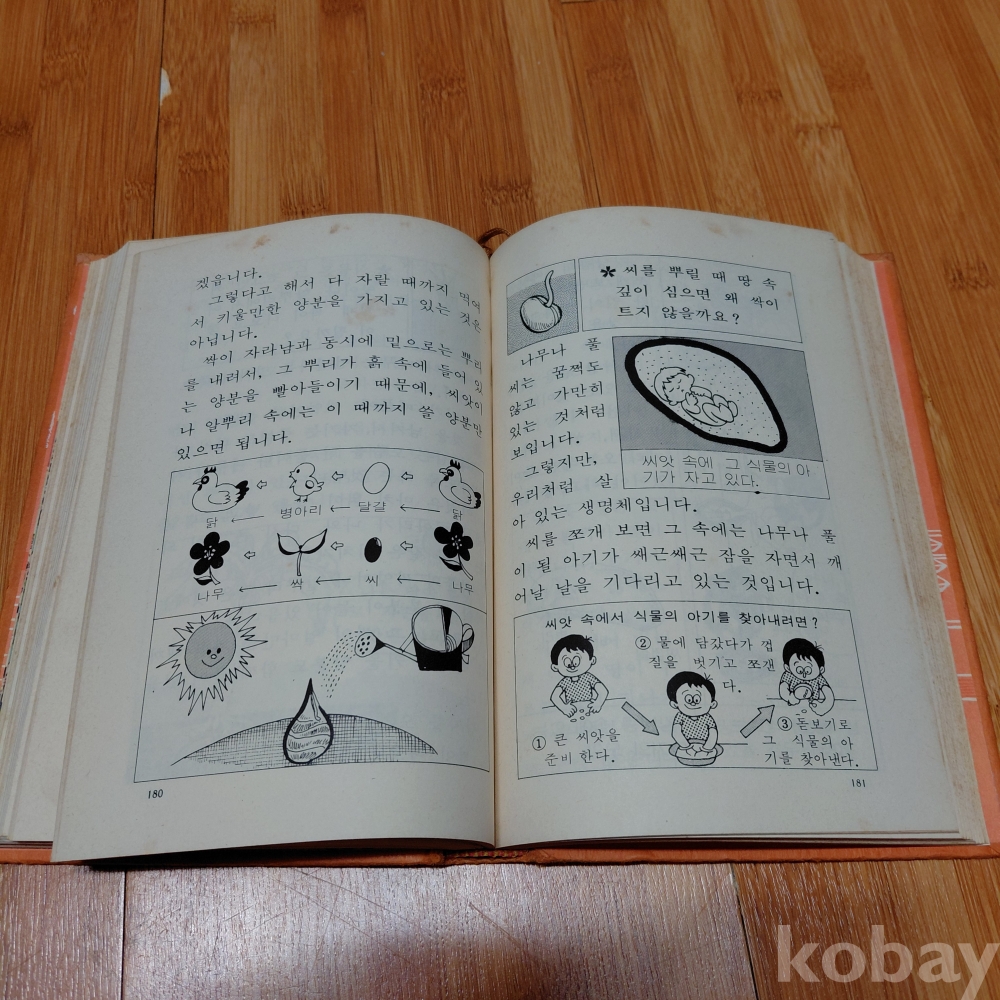 겠읍니다.
그렇다고 해서 다 자랄 때까지 먹여
서 키울만한 양분을 가지고 있는 것은
아닙니다.
싹이 자라남과 동시에 밑으로는 뿌리
를 내려서, 그 뿌리가 흙 속에 들어 있
는 양분을 빨아들이기 때문에, 씨앗이
나 알뿌리 속에는 이 때까지 쓸 양분만
있으면 됩니다.
닭 병아리 달걀 닭
나무 싹 씨 나무
180
* 씨를 뿌릴 때 땅 속
깊이 심으면 왜 싹이
트지 않을까요?
나무나 풀
씨는 꿈쩍도
않고 가만히
있는 것처럼
보입니다.
그렇지만,
우리처럼 살
아 있는 생명체입니다.
씨앗 속에 그 식물의 아
기가 자고 있다.
씨를 쪼개 보면 그 속에는 나무나 풀
이 될 아기가 쌔근쌔근 잠을 자면서 깨
어날 날을 기다리고 있는 것입니다.
씨앗 속에서 식물의 아기를 찾아내려면?
① 큰 씨앗을
준비 한다.
② 물에 담갔다가 껍
질을 벗기고 쪼갠
다.
③ 돋보기로
그 식물의 아
기를 찾아낸다.
181
kobay